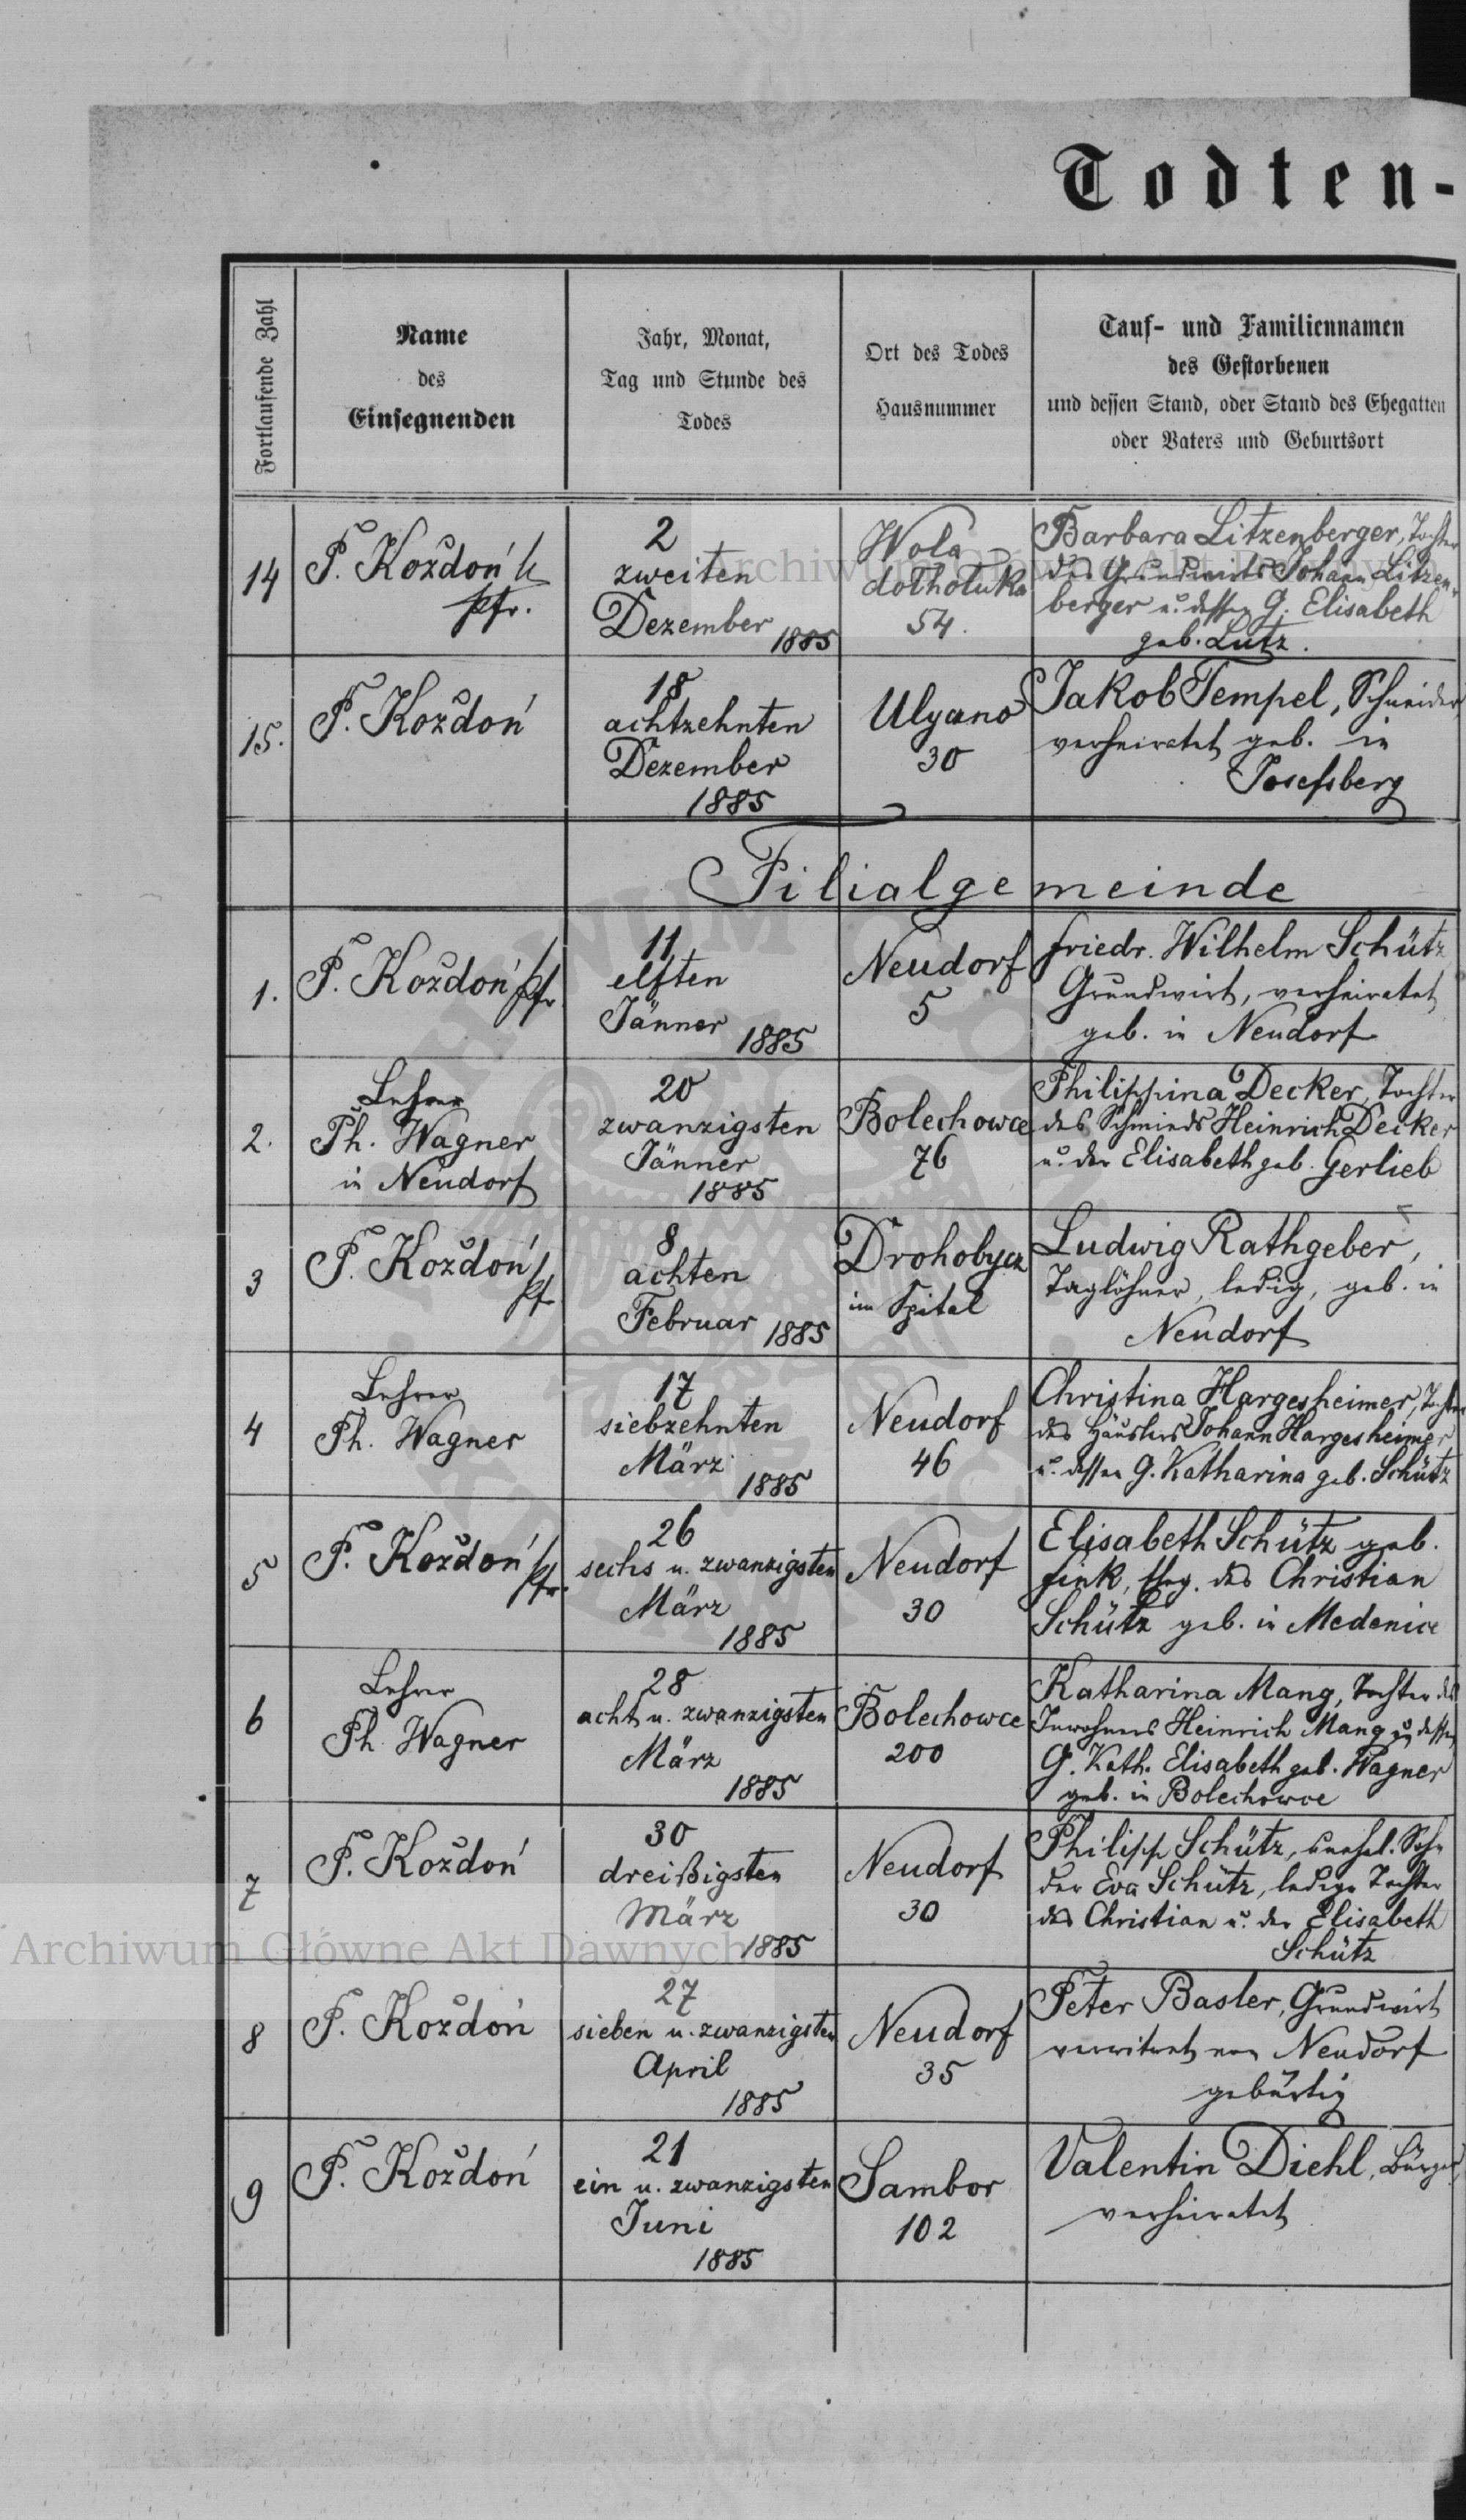 Todten-
Fortlaufende Zahl
Name
des
Einsegnenden
Jahr, Monat,
Tag und Stunde des
Todes
Ort des Todes
Hausnummer
Tauf- und Familiennamen
des Gestorbenen
und dessen Stand, oder Stand des Ehegatten
oder Vaters und Geburtsort
14
P. Kożdoń
Pfr.
2
zweiten
Dezember
1885
Wola
dotholuka
54.
Barbara Litzenberger, Tochter
des Grundwirts Johann Litzen-
berger u. dessen G. Elisabeth
geb. Lutz.
15.
P. Kożdoń
18
achtzehnten
Dezember
1885
Ulyano
30
Jakob Tempel, Schneider
verheiratet geb. in
Josefsberg
Filialgemeinde
1.
P. Kożdoń Pfr
11
elften
Jänner
1885
Neudorf
5
Friedr. Wilhelm Schütz
Grundwirt, verheiratet
geb. in Neudorf
2.
Lehrer
Ph. Wagner
in Neudorf
20
zwanzigsten
Jänner
1885
Bolechowce
76
Philippina Decker, Tochter
des Schmieds Heinrich Decker
u. der Elisabeth geb. Gerlieb
3
P. Kożdoń
Pf
8
achten
Februar 1885
Drohobycz
im Spital
Ludwig Rathgeber,
Taglöhner, ledig, geb. in
Neudorf
4
Lehrer
Ph. Wagner
17
siebzehnten
März
1885
Neudorf
46
Christina Hargesheimer, Tochter
des Häuslers Johann Hargesheimer
u. dessen G. Katharina geb. Schütz
5
P. Kożdoń
Pfr.
26
sechs u. zwanzigsten
März
1885
Neudorf
30
Elisabeth Schütz geb.
Fink, Eheg. des Christian
Schütz geb. in Medenice
6
Lehrer
Ph. Wagner
28
acht u. zwanzigsten
März
1885
Bolechowce
200
Katharina Mang, Tochter des
Inwohners Heinrich Mang u. dessen
G. Kath. Elisabeth geb. Wagner
geb. in Bolechowce
7
P. Kożdoń
30
dreißigsten
März
1885
Neudorf
30
Philipp Schütz, unehel. Sohn
der Eva Schütz, ledige Tochter
des Christian u. der Elisabeth
Schütz
8
P. Kożdoń
27
sieben u. zwanzigsten
April
1885
Neudorf
35
Peter Basler, Grundwirt
verwitwet von Neudorf
gebürtig
9
P. Kożdoń
21
ein u. zwanzigsten
Juni
1885
Sambor
102
Valentin Diehl, Bürger
verheiratet
Archiwum Główne Akt Dawnych
Archiwum Główne Akt Dawnych